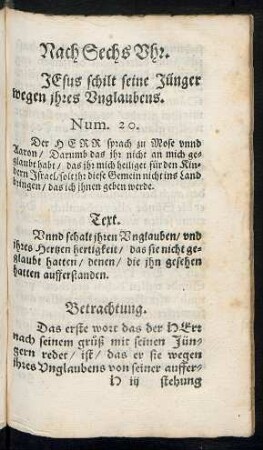 Nach Sechs Vhr.
JEsus schilt seine Jünger
wegen jhres Vnglaubens.
Num. 20.
Der HERR sprach zu Mose vnnd
Aaron / Darumb das jhr nicht an mich ge-
glaubt habt / das jhr mich heiliget für den Kin-
dern Jsrael / solt jhr diese Gemein nicht ins Land
bringen / das ich jhnen geben werde.
Text.
Vnnd schalt jhren Vnglauben / vnd
jhres Hertzen hertigkeit / das sie nicht ge-
glaubt hatten / denen / die jhn gesehen
hatten aufferstanden.
Betrachtung.
Das erste wort das der HErr
nach seinem grüß mit seinen Jün-
gern redet / ist / das er sie wegen
jhres Vnglaubens von seiner auffer-
H iij stehung